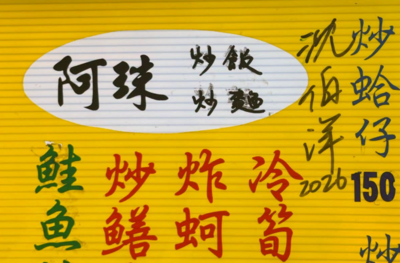 阿珠
炒飯
炒麵
沈伯洋
2026
炒蛤仔
150
炒
冷筍
炸蚵
炒鱔
鮭魚